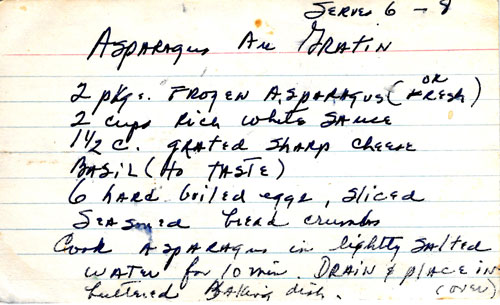 Serves 6 - 8
Asparagus Au Gratin
2 pkgs. Frozen Asparagus (or Fresh)
2 cups Rich White Sauce
1 1/2 c. grated sharp cheese
Basil (to taste)
6 hard boiled eggs, sliced
Seasoned bread crumbs
Cook asparagus in lightly salted
water for 10 min. Drain & place in
buttered baking dish. (over)